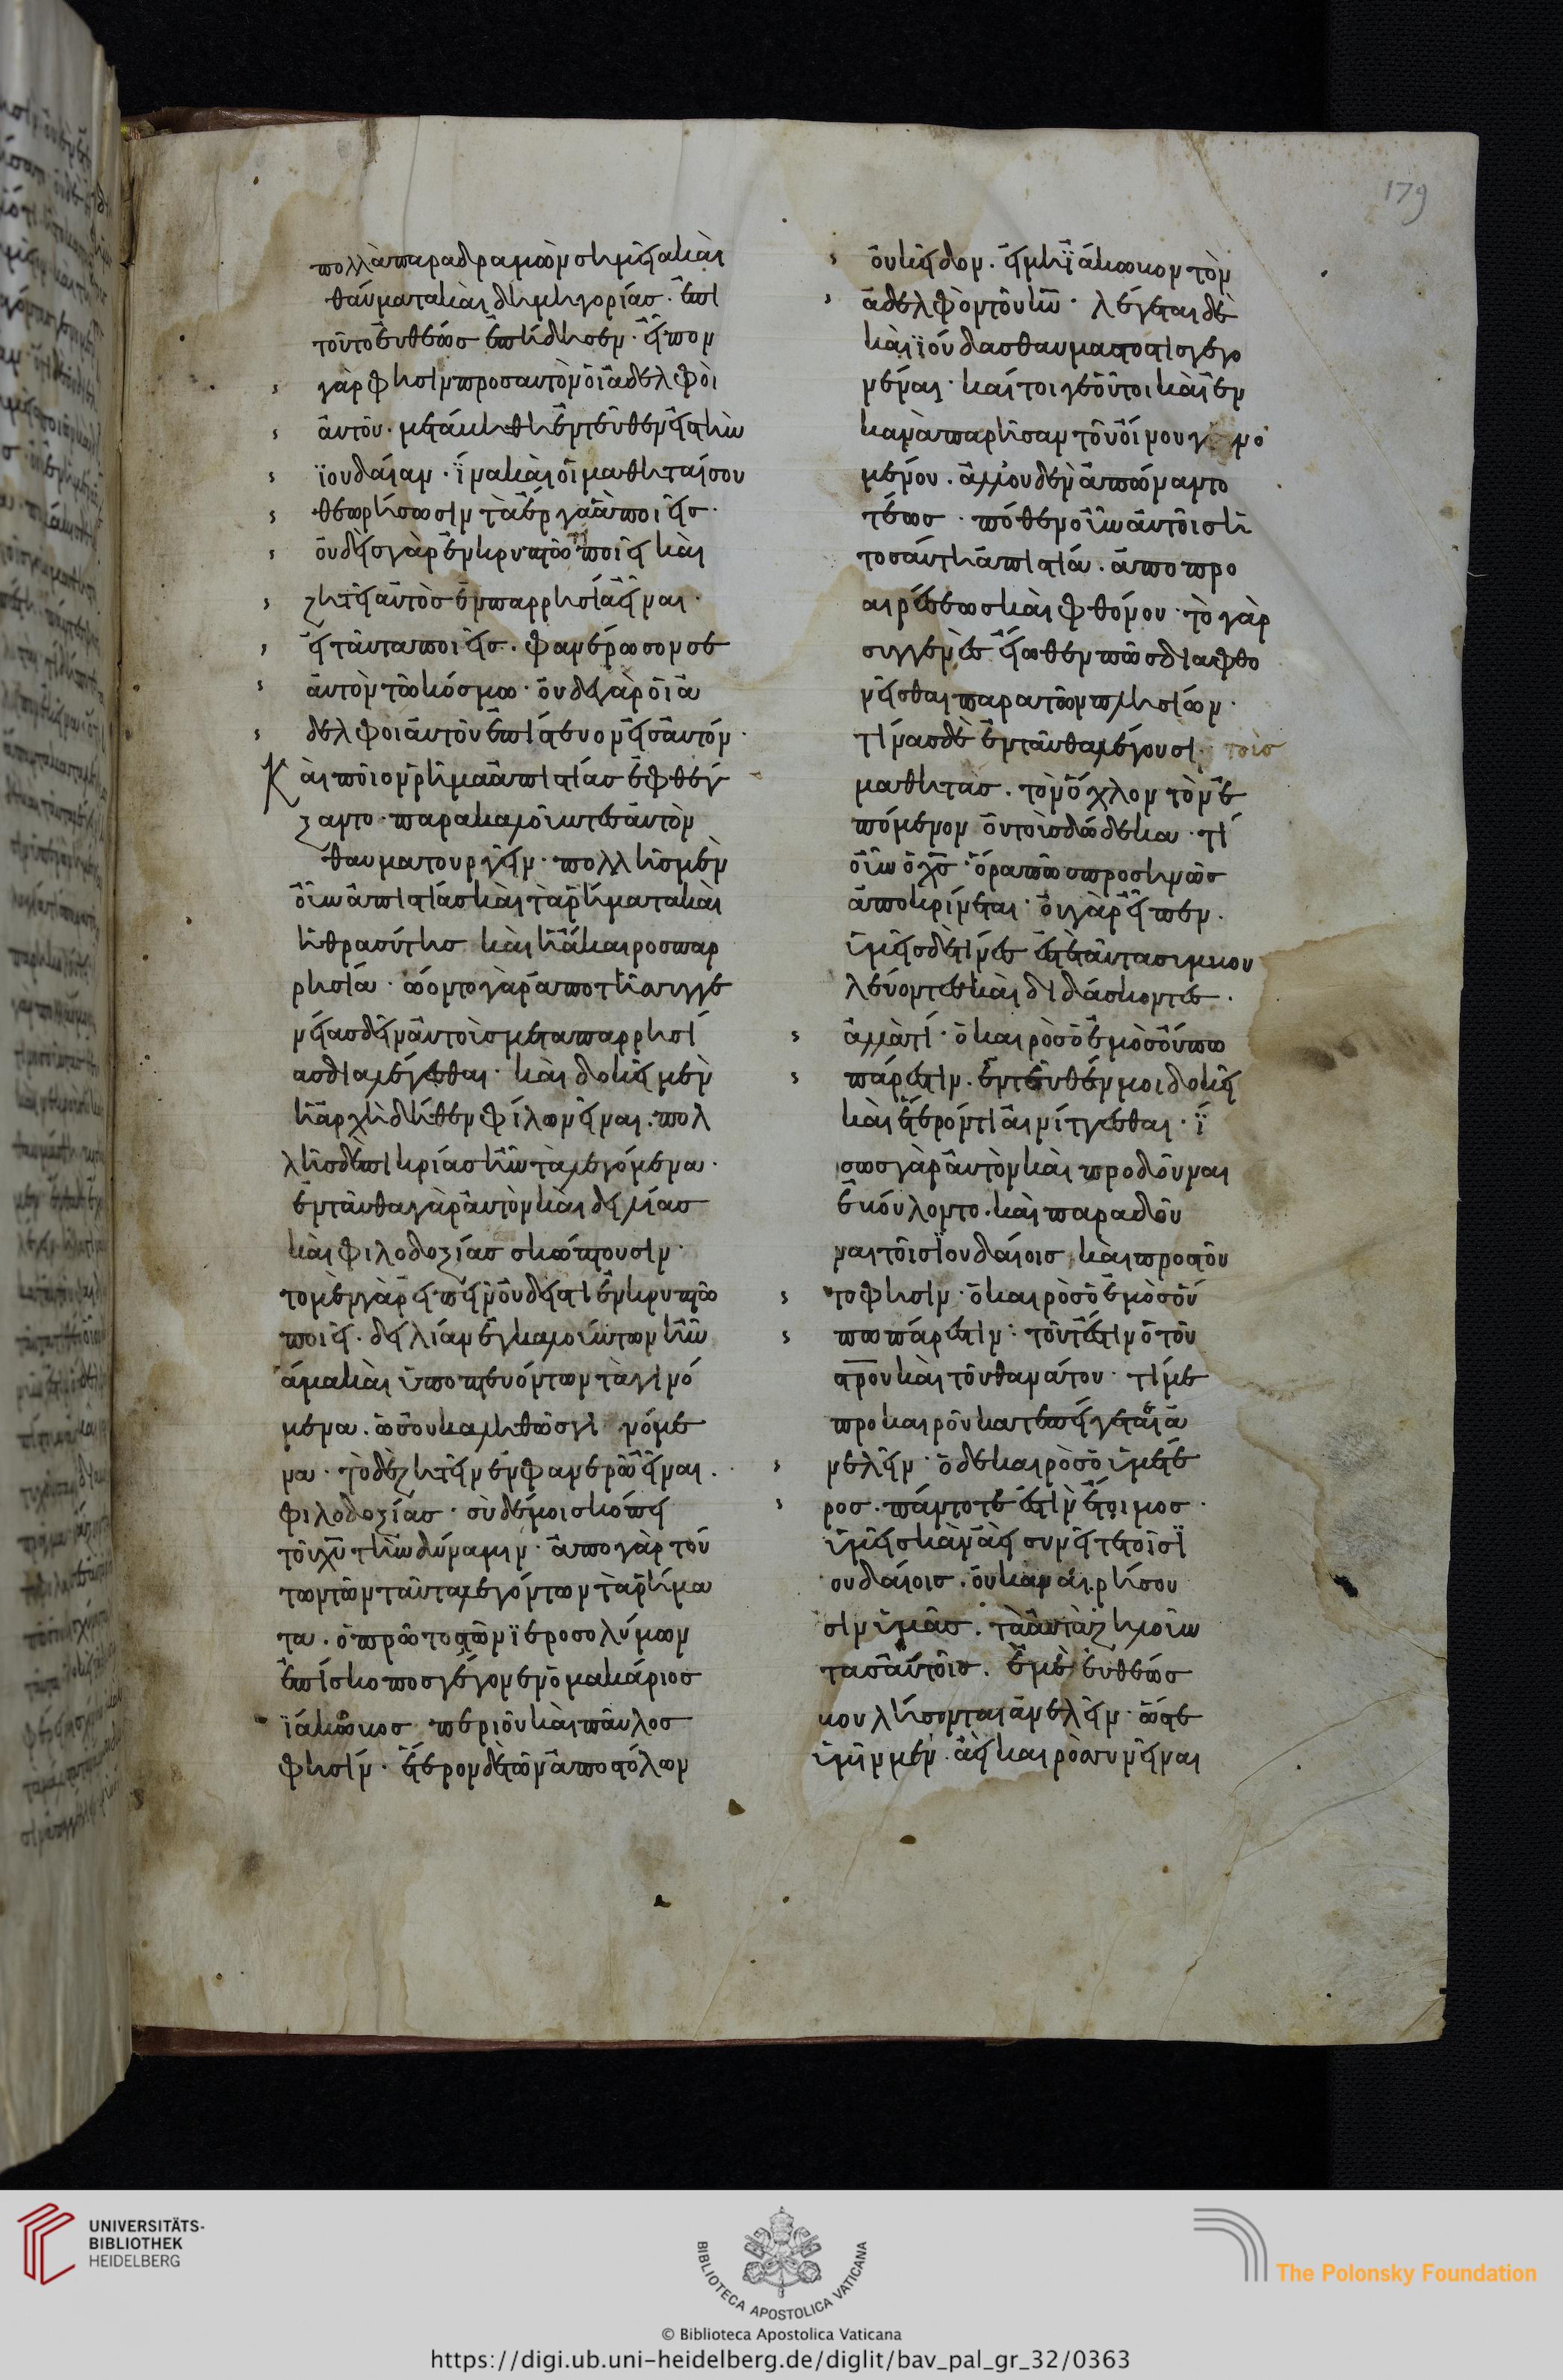 179
πολλὰ παραδραμὼν σημεῖα καὶ
θαύματα καὶ δημηγορίας· ἐπὶ
τοῦτο εὐθέως ἐπήδησεν· εἶπον
γὰρ φησὶν πρὸς αὐτὸν οἱ ἀδελφοὶ
αὐτοῦ· μετάβηθι ἐντεῦθεν εἰς τὴν
ἰουδαίαν· ἵνα καὶ οἱ μαθηταί σου
θεωρήσωσιν τὰ ἔργα ἃ ποιεῖς·
οὐδεὶς γὰρ ἐν κρυπτῶ τι ποιεῖ καὶ
ζητεῖ αὐτὸς ἐν παρρησία εἶναι·
εἰ ταῦτα ποιεῖς· φανέρωσον σε
αὐτὸν τῶ κόσμω· οὐδὲ γὰρ οἱ ἀ
δελφοὶ αὐτοῦ ἐπίστευον εἰς αὐτόν·
Καὶ ποῖον ῥῆμα ἀπιστίας ἐφθέγ
ξαντο· παρακαλοῦντες αὐτὸν
θαυματουργεῖν· πολλῆς μὲν
οὖν ἀπιστίας καὶ τὰ ῥήματα καὶ
ἡ θρασύτης καὶ ἡ ἄκαιρος παρ
ρησία· ὤοντο γὰρ ἀπὸ τῆς συγγε
νείας δεῖν αὐτοῖς μετὰ παρρησί
ας διαλέγεσθαι· καὶ δοκεῖ μὲν
ἡ ἀρχὴ δῆθεν φίλων εἶναι· πολ
λῆς δὲ πικρίας ἦν τὰ λεγόμενα·
ἐνταῦθα γὰρ αὐτὸν καὶ δειλίας
καὶ φιλοδοξίας σκώπτουσιν·
τὸ μὲν γὰρ εἰπεῖν οὐδεὶς τι ἐν κρυπτῶ
ποιεῖ· δειλίαν ἐγκαλούντων ἦν
ἅμα καὶ ὑποπτευόντων τὰ γινό
μενα· ὡς οὐκ ἀληθῶς γινόμε
να· τὸ δὲ ζητεῖν ἐν φανερῶ εἶναι·
φιλοδοξίας· σὺ δέ μοι σκόπει
τοῦ χῦ τὴν δύναμιν· ἀπὸ γὰρ τού
των τῶν ταῦτα λεγόντων τὰ ῥήμα
τα· ὁ πρῶτος τῶν ἱεροσολύμων
ἐπίσκοπος γέγονεν ὁ μακάριος
ἰάκωβος περὶ οὗ καὶ παῦλος
φησίν· ἕτερον δὲ τῶν ἀποστόλων
οὐκ εἶδον· εἰ μὴ ἰάκωβον τὸν
ἀδελφὸν τοῦ κῦ· λέγεται δὲ
καὶ ἰούδας θαυμαστός τις γεγο
νέναι· καίτοι γε οὗτοι καὶ ἐν
κανὰ παρῆσαν τοῦ οἴνου γινο
μένου· ἀλλ' οὐδὲν ἀπώναντο
τέως· πόθεν οὖν αὐτοῖς ἡ
τοσαύτη ἀπιστία· ἀπὸ προ
αιρέσεως καὶ φθόνου· τὸ γὰρ
συγγενὲς εἴωθεν πῶς διαφθο
νεῖσθαι παρὰ τῶν πλησίων·
τίνας δὲ ἐνταῦθα λέγουσι τοὺς
μαθητάς· τὸν ὄχλον τὸν ἑ
πόμενον οὐ τοὺς δώδεκα· τί
οὖν ὁ χς· ὅρα πῶς προσηνῶς
ἀποκρίνεται· οὐ γὰρ εἶπεν·
ὑμεῖς δὲ τίνες ἐστὲ αὐτὰ συμβου
λεύοντες καὶ διδάσκοντες·
ἀλλὰ τί· ὁ καιρὸς ὁ ἐμὸς οὔπω
πάρεστιν· ἐντεῦθέν μοι δοκεῖ
καὶ ἕτερόν τι αἰνίττεσθαι· ἴ
σως γὰρ αὐτὸν καὶ προδοῦναι
ἐβούλοντο· καὶ παραδοῦ
ναι τοῖς ἰουδαίοις καὶ πρὸς τοῦ
το φησὶν· ὁ καιρὸς ὁ ἐμὸς οὔ
πω πάρεστιν· τουτέστιν ὁ τοῦ
στρου καὶ τοῦ θανάτου· τί με
πρὸ καιροῦ κατεπείγεται ἀ
νελεῖν· ὁ δὲ καιρὸς ὁ ὑμέτε
ρος· πάντοτέ ἐστιν ἕτοιμος·
ὑμεῖς κἂν ἀεὶ συνῆτε τοῖς ἰ
ουδαίοις· οὐκ ἀναιρήσου
σιν ὑμᾶς· τὰ αὐτὰ ζηλοῦν
τας αὐτοῖς· ἐμὲ εὐθέως
βουλήσονται ἀνελεῖν· ὥστε
ὑμῖν μὲν· ἀεὶ καιρὸς συνεῖναι
UNIVERSITÄTS-
BIBLIOTHEK
HEIDELBERG
BIBLIOTECA APOSTOLICA VATICANA
The Polonsky Foundation
© Biblioteca Apostolica Vaticana
https://digi.ub.uni-heidelberg.de/diglit/bav_pal_gr_32/0363